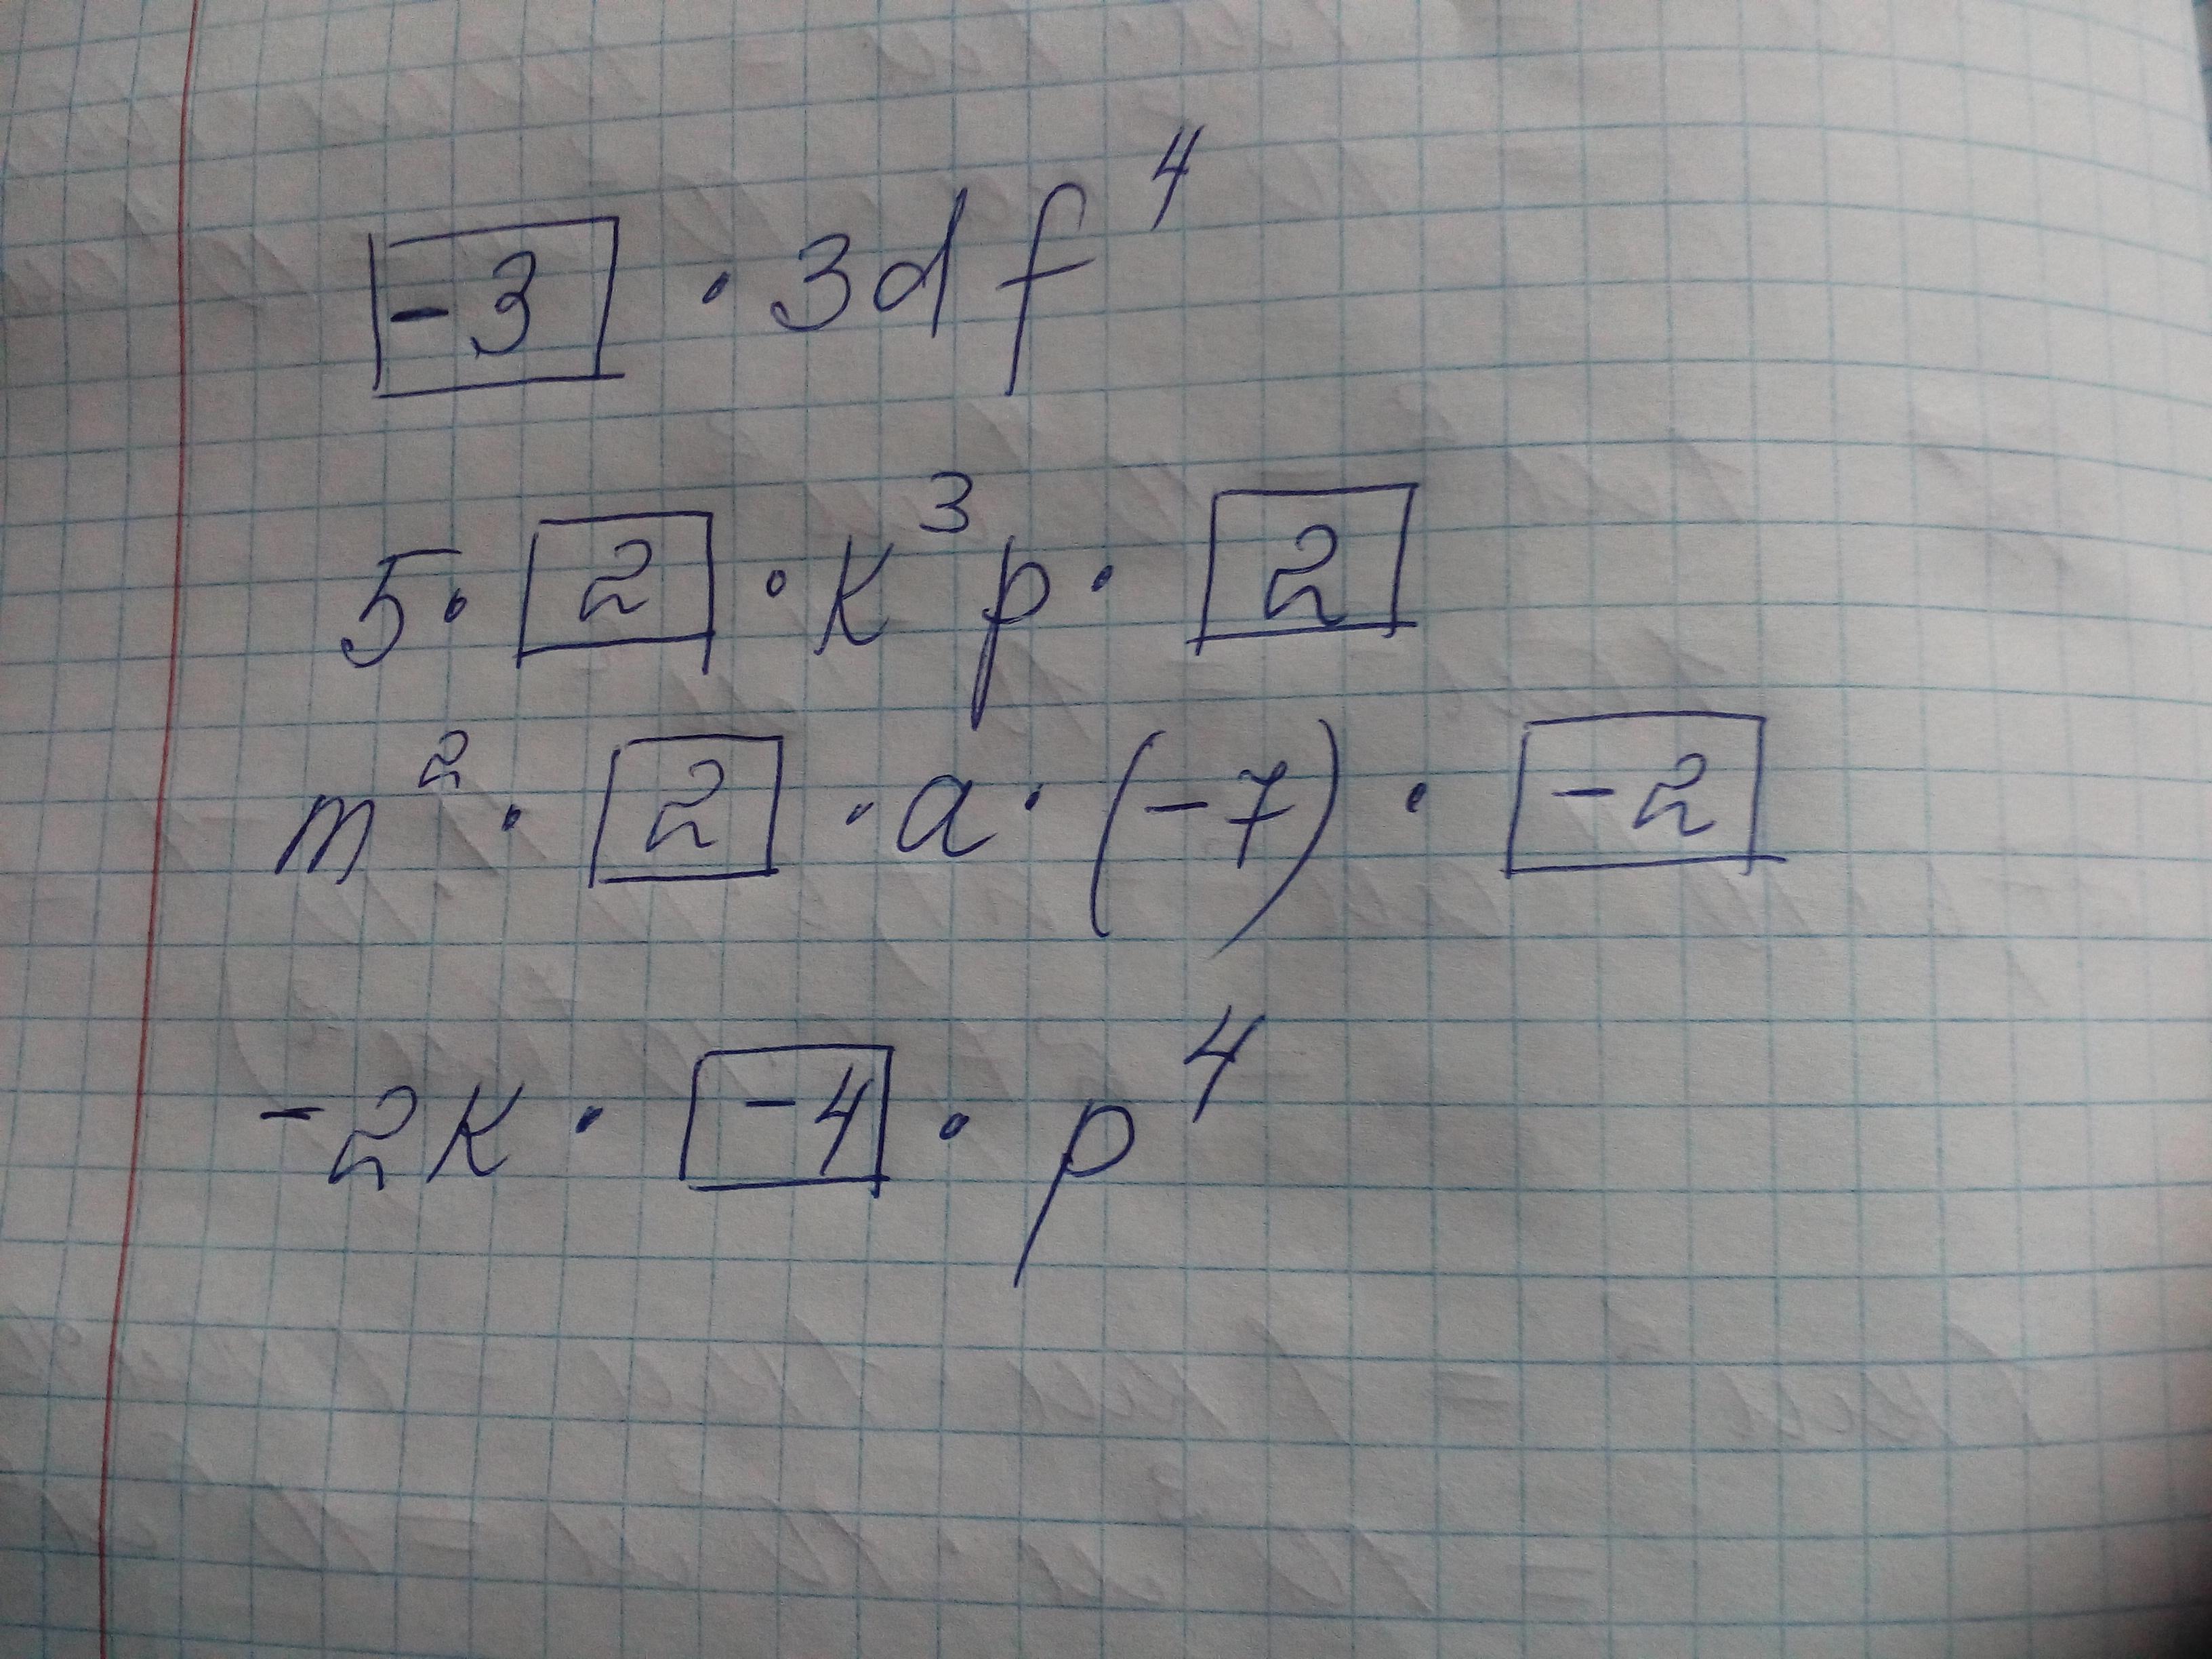 -3 · 3df⁴
5 · 2 · k³p · 2
m² · 2 · a · (-7) · -2
-2k · -4 · p⁴